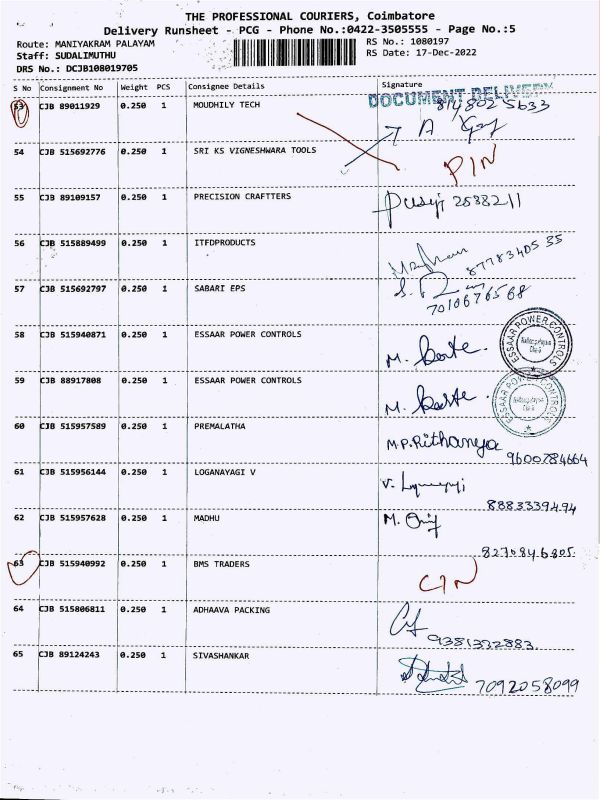 THE PROFESSIONAL COURIERS, Coimbatore
Delivery Runsheet - PCG - Phone No.:0422-3505555 - Page No.:5
Route: MANIYAKRAM PALAYAM
RS No.: 1080197
Staff: SUDALIMUTHU
RS Date: 17-Dec-2022
DRS No.: DCJB108019705
S No Consignment No Weight PCS Consignee Details Signature
DOCUMENT DELIVERY
53 CJB 89011929 0.250 1 MOUDHILY TECH
54 CJB 515692776 0.250 1 SRI KS VIGNESHWARA TOOLS PIN
55 CJB 89109157 0.250 1 PRECISION CRAFTTERS
56 CJB 515889499 0.250 1 ITFDPRODUCTS 8778340535
57 CJB 515692797 0.250 1 SABARI EPS
7010676568
58 CJB 515940871 0.250 1 ESSAAR POWER CONTROLS M.
ESSAAR POWER CONTROLS
59 CJB 88917808 0.250 1 ESSAAR POWER CONTROLS M.
ESSAAR POWER CONTROLS
60 CJB 515957589 0.250 1 PREMALATHA M.P.Rithanya
9600784664
61 CJB 515956144 0.250 1 LOGANAYAGI V V.
8883339494
62 CJB 515957628 0.250 1 MADHU M.
8270846805
63 CJB 515940992 0.250 1 BMS TRADERS CIN
64 CJB 515806811 0.250 1 ADHAAVA PACKING
9381372883
65 CJB 89124243 0.250 1 SIVASHANKAR
7092058099